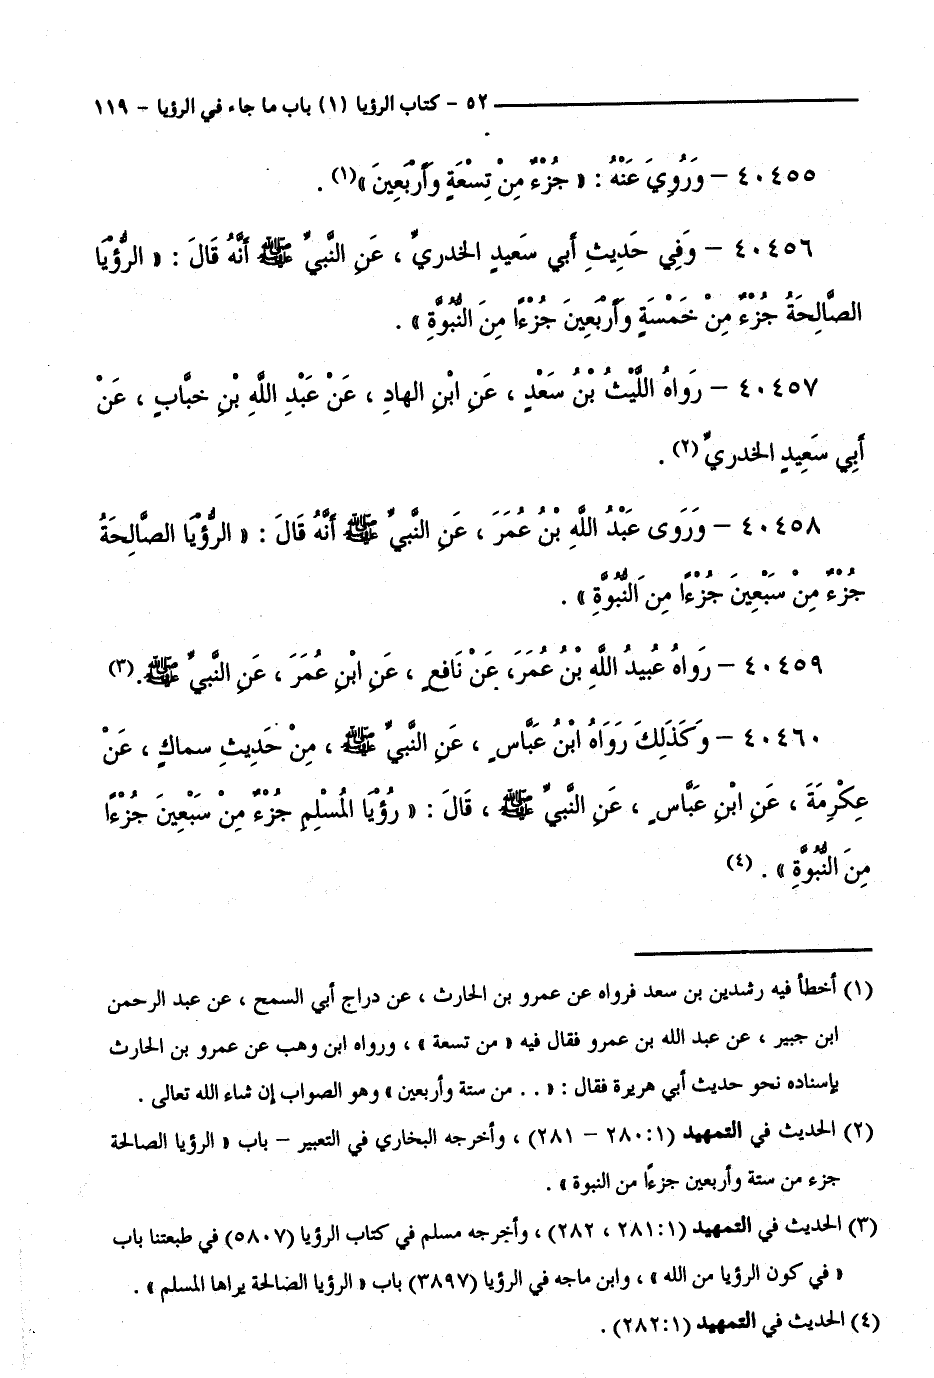 ٥٢ - كتاب الرؤيا (١) باب ما جاء في الرؤيا - ١١٩
٤٠٤٥٥ - وَرُوِيَ عَنْهُ : « جُزْءٌ مِنْ تِسْعَةٍ وَأَرْبَعِينَ »(١) .
٤٠٤٥٦ - وَفِي حَدِيثِ أَبي سَعيدٍ الخدريِّ ، عَنِ النَّبيِّ ﷺ أَنَّهُ قَالَ : « الرُّؤْيَا
الصَّالِحَةُ جُزْءٌ مِنْ خَمْسَةٍ وَأَرْبَعِينَ جُزْءًا مِنَ النُّبُوَّةِ » .
٤٠٤٥٧ - رَوَاهُ اللَّيْثُ بْنُ سَعْدٍ ، عَنِ ابْنِ الهادِ ، عَنْ عَبْدِ اللَّهِ بْنِ خبَّابٍ ، عَنْ
أَبِي سَعِيدٍ الخدريِّ (٢) .
٤٠٤٥٨ - وَرَوَى عَبْدُ اللَّهِ بْنُ عُمَرَ ، عَنِ النَّبيِّ ﷺ أَنَّهُ قَالَ : « الرُّؤْيَا الصَّالِحَةُ
جُزْءٌ مِنْ سَبْعِينَ جُزْءًا مِنَ النُّبُوَّةِ » .
٤٠٤٥٩ - رَواهُ عُبيدُ اللَّهِ بْنُ عُمَرَ، عَنْ نَافعٍ ، عَنِ ابْنِ عُمَرَ ، عَنِ النَّبيِّ ﷺ.(٣)
٤٠٤٦٠ - وَكَذَلِكَ رَوَاهُ ابْنُ عَبَّاسٍ ، عَنِ النَّبيِّ ﷺ ، مِنْ حَدِيثِ سماكٍ ، عَنْ
عِكْرِمَةَ ، عَنِ ابْنِ عَبَّاسٍ ، عَنِ النَّبيِّ ﷺ ، قَالَ : « رُؤْيَا المُسْلِمِ جُزْءٌ مِنْ سَبْعِينَ جُزْءًا
مِنَ النُّبُوَّةِ » . (٤)
(١) أخطأ فيه رشدين بن سعد فرواه عن عمرو بن الحارث ، عن دراج أبي السمح ، عن عبد الرحمن
ابن جبير ، عن عبد الله بن عمرو فقال فيه « من تسعة » ، ورواه ابن وهب عن عمرو بن الحارث
بإسناده نحو حديث أبي هريرة فقال : « . . من ستة وأربعين » وهو الصواب إن شاء الله تعالى .
(٢) الحديث في التمهيد (١:٢٨٠ - ٢٨١) ، وأخرجه البخاري في التعبير - باب « الرؤيا الصالحة
جزء من ستة وأربعين جزءًا من النبوة » .
(٣) الحديث في التمهيد (١:٢٨١ ، ٢٨٢) ، وأخرجه مسلم في كتاب الرؤيا (٥٨٠٧) في طبعتنا باب
« في كون الرؤيا من الله » ، وابن ماجه في الرؤيا (٣٨٩٧) باب « الرؤيا الصالحة يراها المسلم » .
(٤) الحديث في التمهيد (١:٢٨٢) .